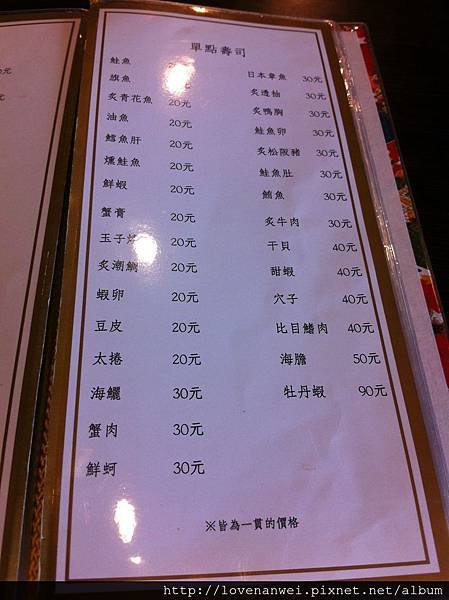 單點壽司
鮭魚
旗魚
炙青花魚 20元
油魚 20元
鱈魚肝 20元
燻鮭魚 20元
鮮蝦 20元
蟹膏 20元
玉子燒 20元
炙潮鯛 20元
蝦卵 20元
豆皮 20元
太捲 20元
海鱺 30元
蟹肉 30元
鮮蚵 30元
日本章魚 30元
炙透抽 30元
炙鴨胸 30元
鮭魚卵 30元
炙松阪豬 30元
鮭魚肚 30元
鮪魚 30元
炙牛肉 30元
干貝 40元
甜蝦 40元
穴子 40元
比目鰭肉 40元
海膽 50元
牡丹蝦 90元
※皆為一貫的價格
http://lovenanwei.pixnet.net/album